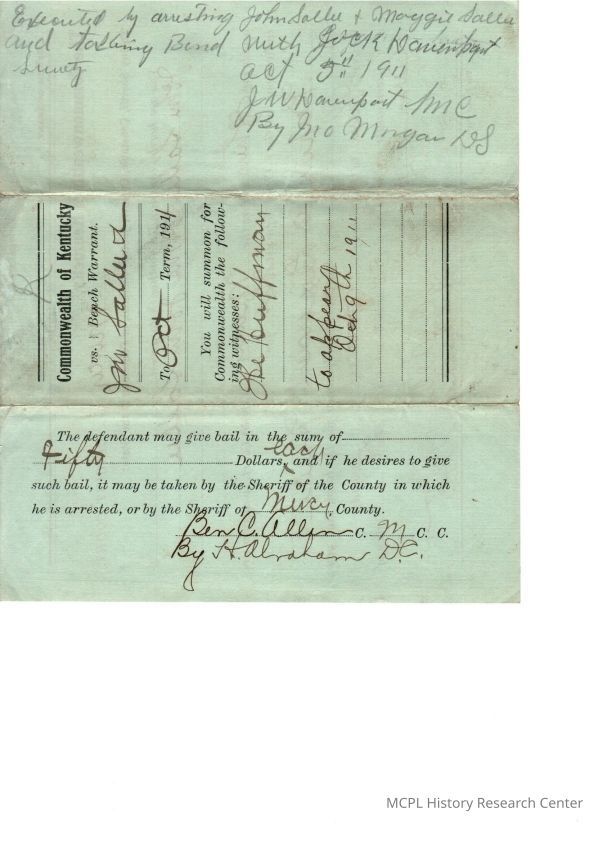 Executed by arresting John Sallee & Maggie Sallee
and taking Bond with Jack Davenport
surety
Oct 5" 1911
J W Davenport SMC
By Jno Morgan DS
Commonwealth of Kentucky
vs. } Bench Warrant.
Jno Sallee &
To Oct Term, 1911
You will summon for
Commonwealth the follow-
ing witnesses:
Huffman
to appear
Oct 9th 1911
The defendant may give bail in the sum of
Fifty Dollars, each and if he desires to give
such bail, it may be taken by the Sheriff of the County in which
he is arrested, or by the Sheriff of Mercer County.
Ben C. Allen C. M C. C.
By H. Abraham D.C.
MCPL History Research Center